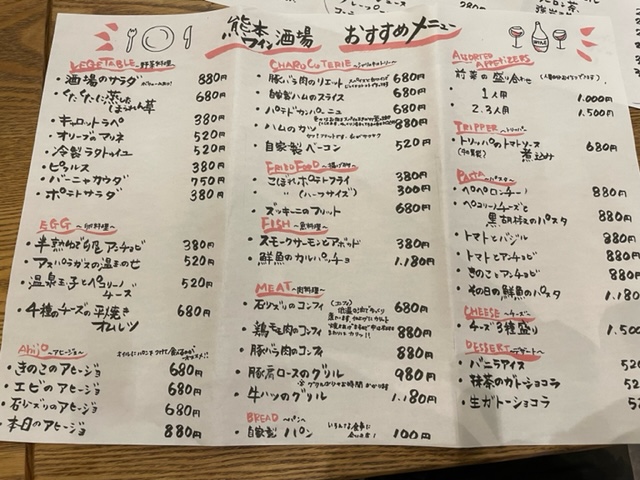 熊本
ワイン酒場 おすすめメニュー
VEGETABLE ~野菜料理~
・酒場のサラダ 880円
・くたくたに蒸した 680円
・キャロットラペ 380円
・オリーブマリネ 520円
・冷製ラタトゥイユ 520円
・ピクルス 380円
・バーニャカウダ 750円
・ポテトサラダ 380円
EGG ~卵料理~
・半熟ゆで卵アンチョビ 380円
・アスパラガスの温玉のせ 520円
・温泉玉子とペコリーノ 520円
チーズ
・4種のチーズの平焼き 680円
オムレツ
Ahijo ~アヒージョ~
・きのこのアヒージョ 680円
・エビのアヒージョ 680円
・石づりのアヒージョ 680円
・本日のアヒージョ 880円
CHARCUTERIE ~シャルキュトリー~
・豚バラ肉のリエット 680円
・自家製ハムのスライス 680円
・パテドカンパーニュ 680円
・ハムのカツ 880円
・自家製ベーコン 520円
FRIED FOOD ~揚げ物~
・こぼれポテトフライ 380円
・〃 (ハーフサイズ) 300円
・ズッキーニのフリット 680円
FISH ~魚料理~
・スモークサーモンとアボカド 380円
・鮮魚のカルパッチョ 1.180円
MEAT ~肉料理~
・石づりのコンフィ 680円
・鶏モモ肉のコンフィ 880円
・豚バラ肉のコンフィ 880円
・豚肩ロースのグリル 980円
・牛ハツのグリル 1.180円
BREAD ~パン~
・自家製パン 100円
ASSORTED
APPETIZERS
前菜の盛り合わせ
・1人用 1.000円
・2.3人用 1.500円
TRIPPER ~トリッパ~
・トリッパのトマトソース 680円
煮込み
PASTA ~パスタ~
・ペペロンチーノ 880円
・ペコリーノチーズと 880円
黒胡椒のパスタ
・トマトとバジル 880円
・トマトとアンチョビ 880円
・きのことアンチョビ 880円
・その日の鮮魚のパスタ 1.180
CHEESE ~チーズ~
・チーズ3種盛り 1.500
DESSERT ~デザート~
・バニラアイス
・抹茶のガトーショコラ
・生ガトーショコラ